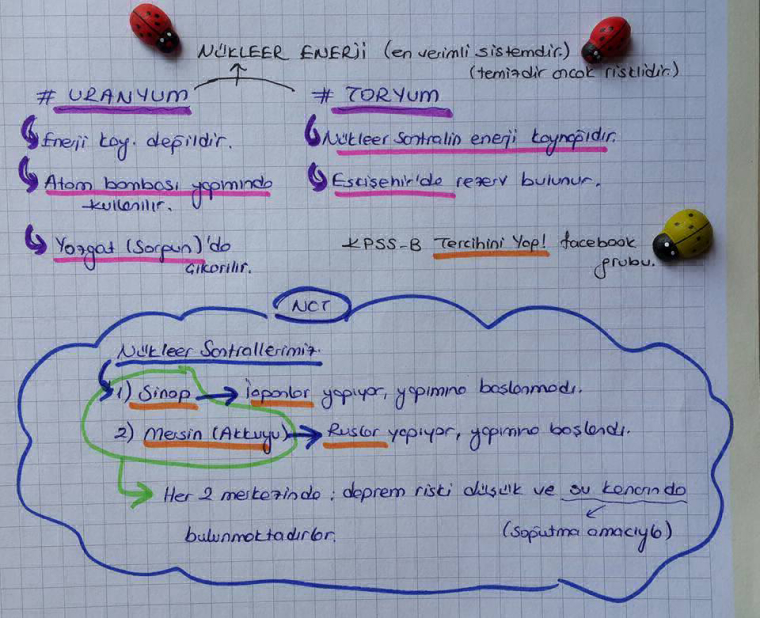 NÜKLEER ENERJİ (en verimli sistemdir.)
(temizdir ancak risklidir.)
# URANYUM
Enerji kay. değildir.
Atom bombası yapımında
kullanılır.
Yozgat (Sorgun)'da
çıkarılır.
# TORYUM
Nükleer santralin enerji kaynağıdır.
Eskişehir'de rezerv bulunur.
KPSS-B Tercihini Yap! facebook
grubu.
NOT
Nükleer Santrallerimiz.
1) Sinop → Japonlar yapıyor, yapımına başlanmadı.
2) Mersin (Akkuyu) → Ruslar yapıyor, yapımına başlandı.
Her 2 merkezinde; deprem riski düşük ve su kenarında
bulunmaktadırlar.
(soğutma amacıyla)